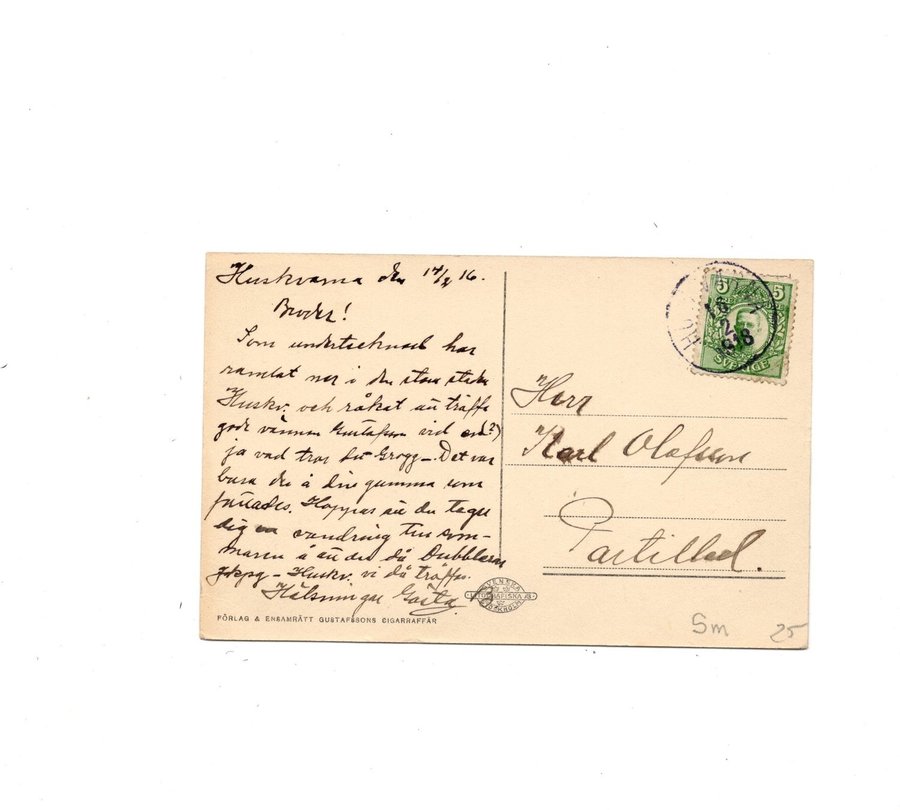 Huskvarna den 14/2 16.
Broder!
Som undertecknad har
ramlat ner i den stora staden
Huskv. och råkat att träffa
gode vännen Gustafsson vid en ?)
ja vad tror du Grogg – Det var
bara du å din gumma som
fattades. Hoppas att du tager
dig en vandring till som-
maren å att du då Dubblerar
Jkpg – Huskv. vi då träffas.
Hälsningar Gösta
FÖRLAG & ENSAMRÄTT GUSTAFSSONS CIGARRAFFÄR
SVENSKA
LITOGRAFISKA A.B.
STOCKHOLM
5 5
SVERIGE
16
2
Herr
Karl Olofsson
Partilled.
Sm 25